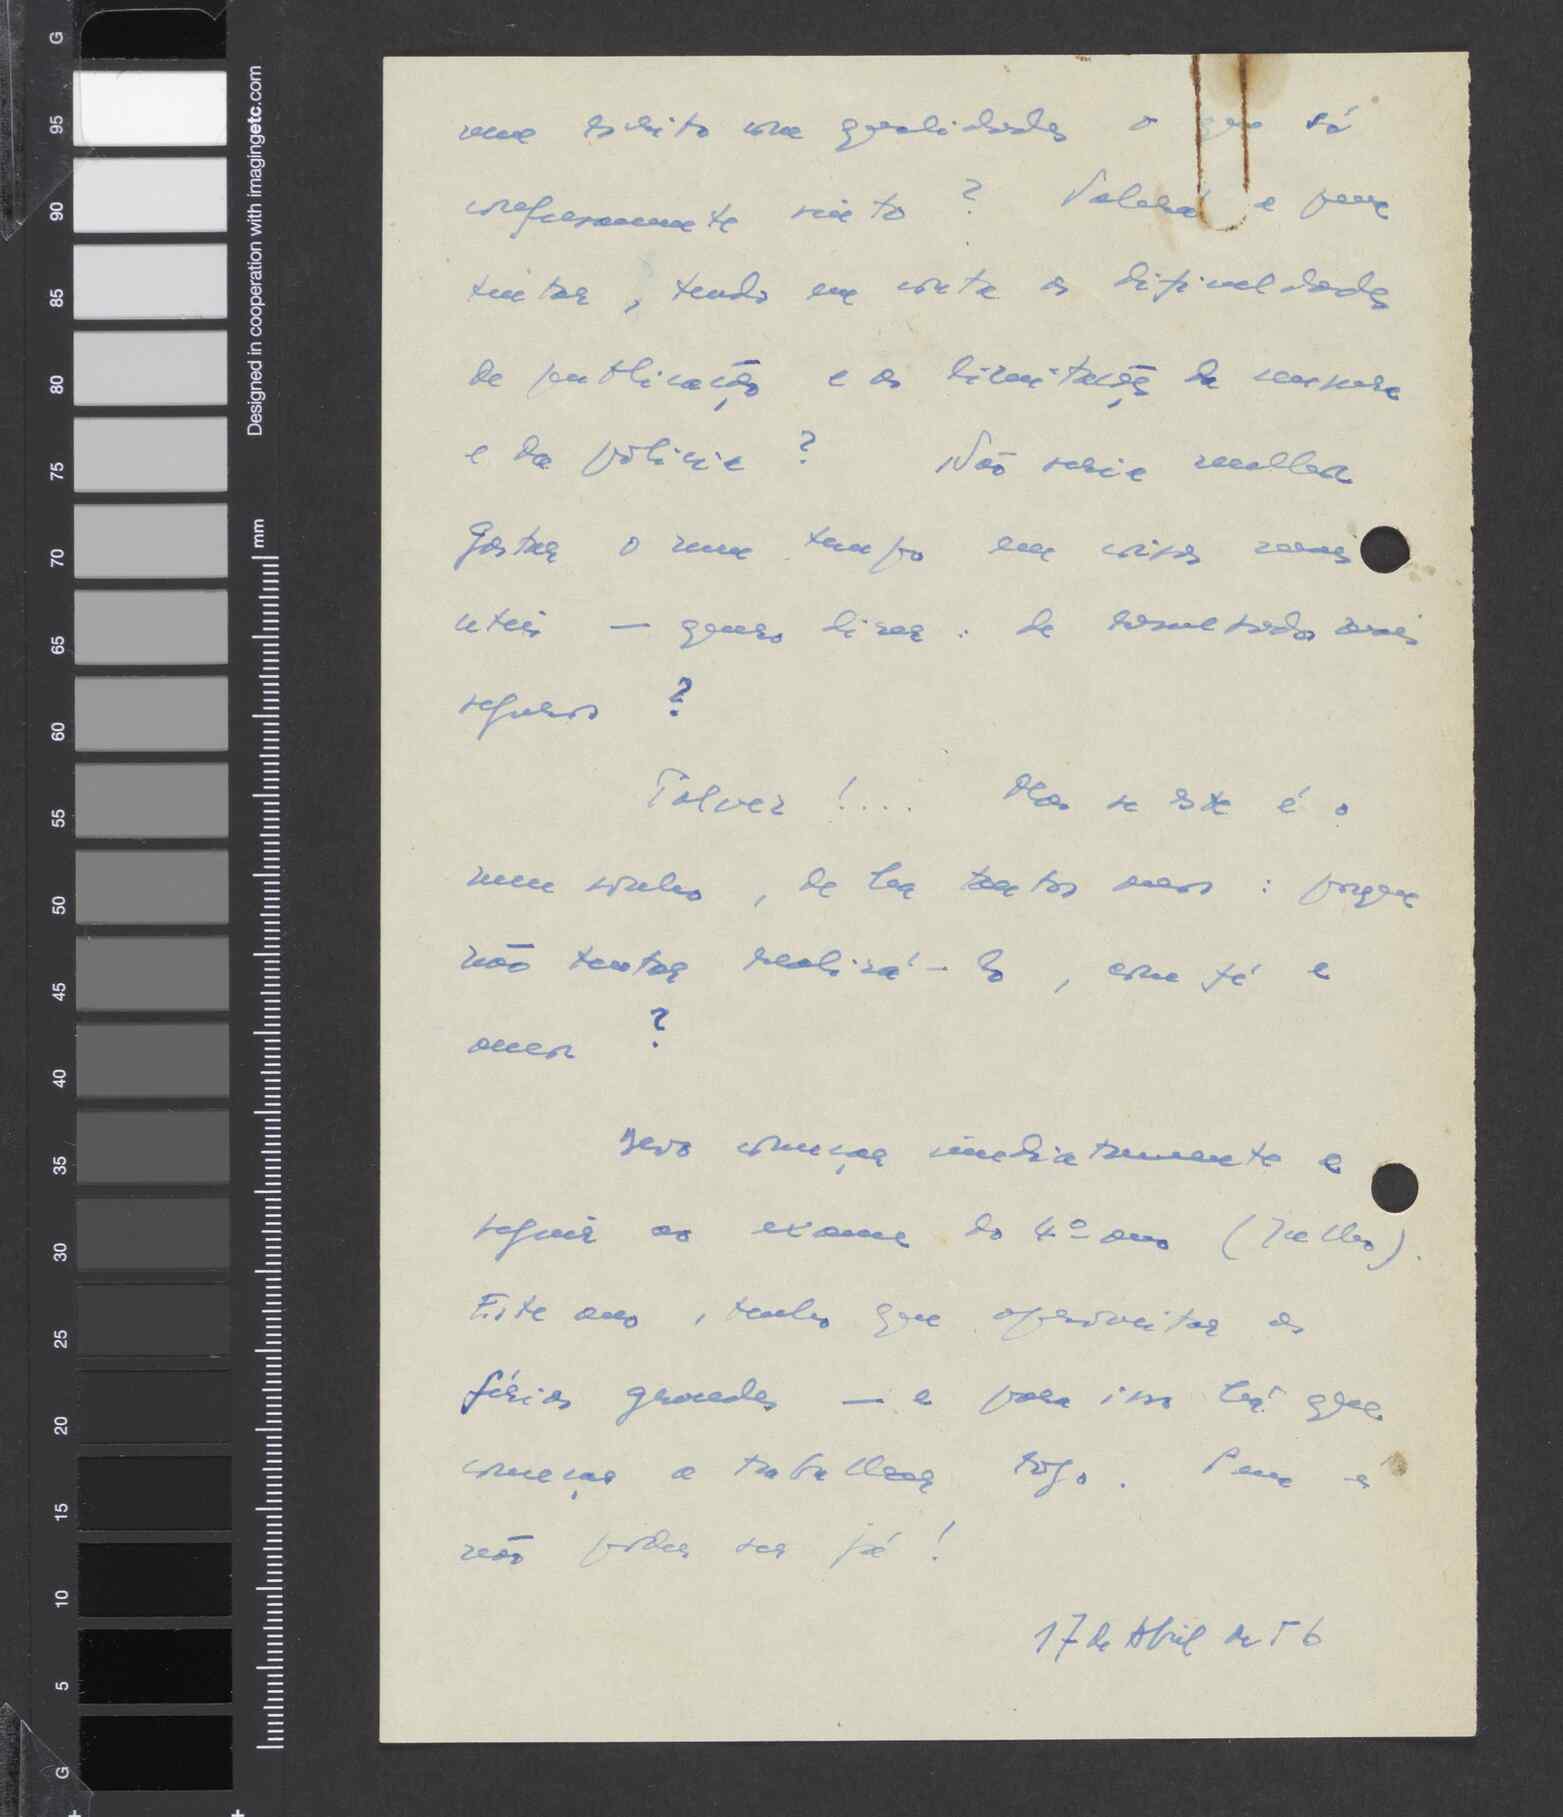 G
95
90
85
80
75
70
65
60
55
50
45
40
35
30
25
20
15
10
5
G
Designed in cooperation with imagingetc.com
mm
num escrito com qualidades o que só
confusamente sinto? Valerá a pena
tentar, tendo em conta as dificuldades
de publicação e as limitações da censura
e da polícia? Não seria melhor
gastar o meu tempo em coisas mais
uteis — quero dizer: de resultados mais
seguros?
Talvez!... Mas se este é o
meu sonho, de há tantos anos: porque
não tentar realizá-lo, com fé e
amor?
Devo começar imediatamente a
seguir ao exame do 4º ano (Julho).
Este ano, tenho que aproveitar as
férias grandes — e para isso há que
começar a trabalhar logo. Pena é
não poder ser já!
17 de Abril de 56